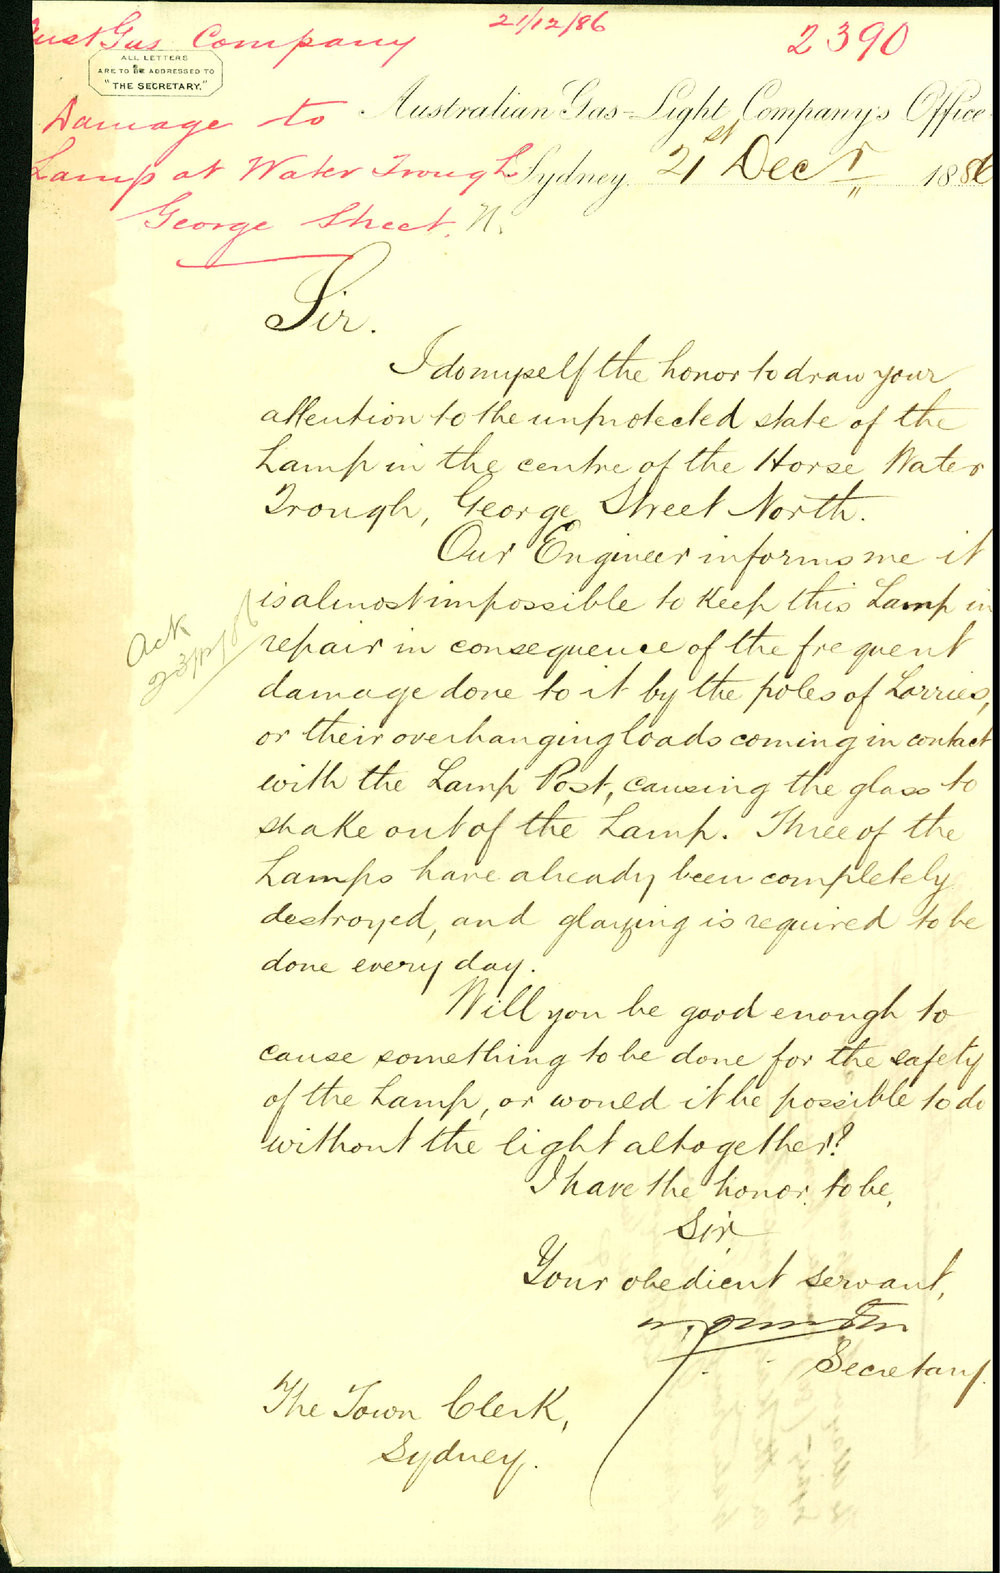 Aust Gas Company
21/12/86
2390
ALL LETTERS
ARE TO BE ADDRESSED TO
"THE SECRETARY."
Damage to
Lamp at Water Trough
George Street. N.
Australian Gas-Light Company's Office
Sydney 21st Decr 1886
Sir.
I do myself the honor to draw your
attention to the unprotected state of the
Lamp in the centre of the Horse Water
Trough, George Street North.
Our Engineer informs me it
is almost impossible to keep this Lamp in
repair in consequence of the frequent
damage done to it by the poles of Lorries,
or their overhanging loads coming in contact
with the Lamp Post, causing the glass to
shake out of the Lamp. Three of the
Lamps have already been completely
destroyed, and glazing is required to be
done every day.
Ack
23/12/86
Will you be good enough to
cause something to be done for the safety
of the Lamp, or would it be possible to do
without the light altogether?
I have the honor to be,
Sir,
Your obedient servant,
Secretary.
The Town Clerk,
Sydney.